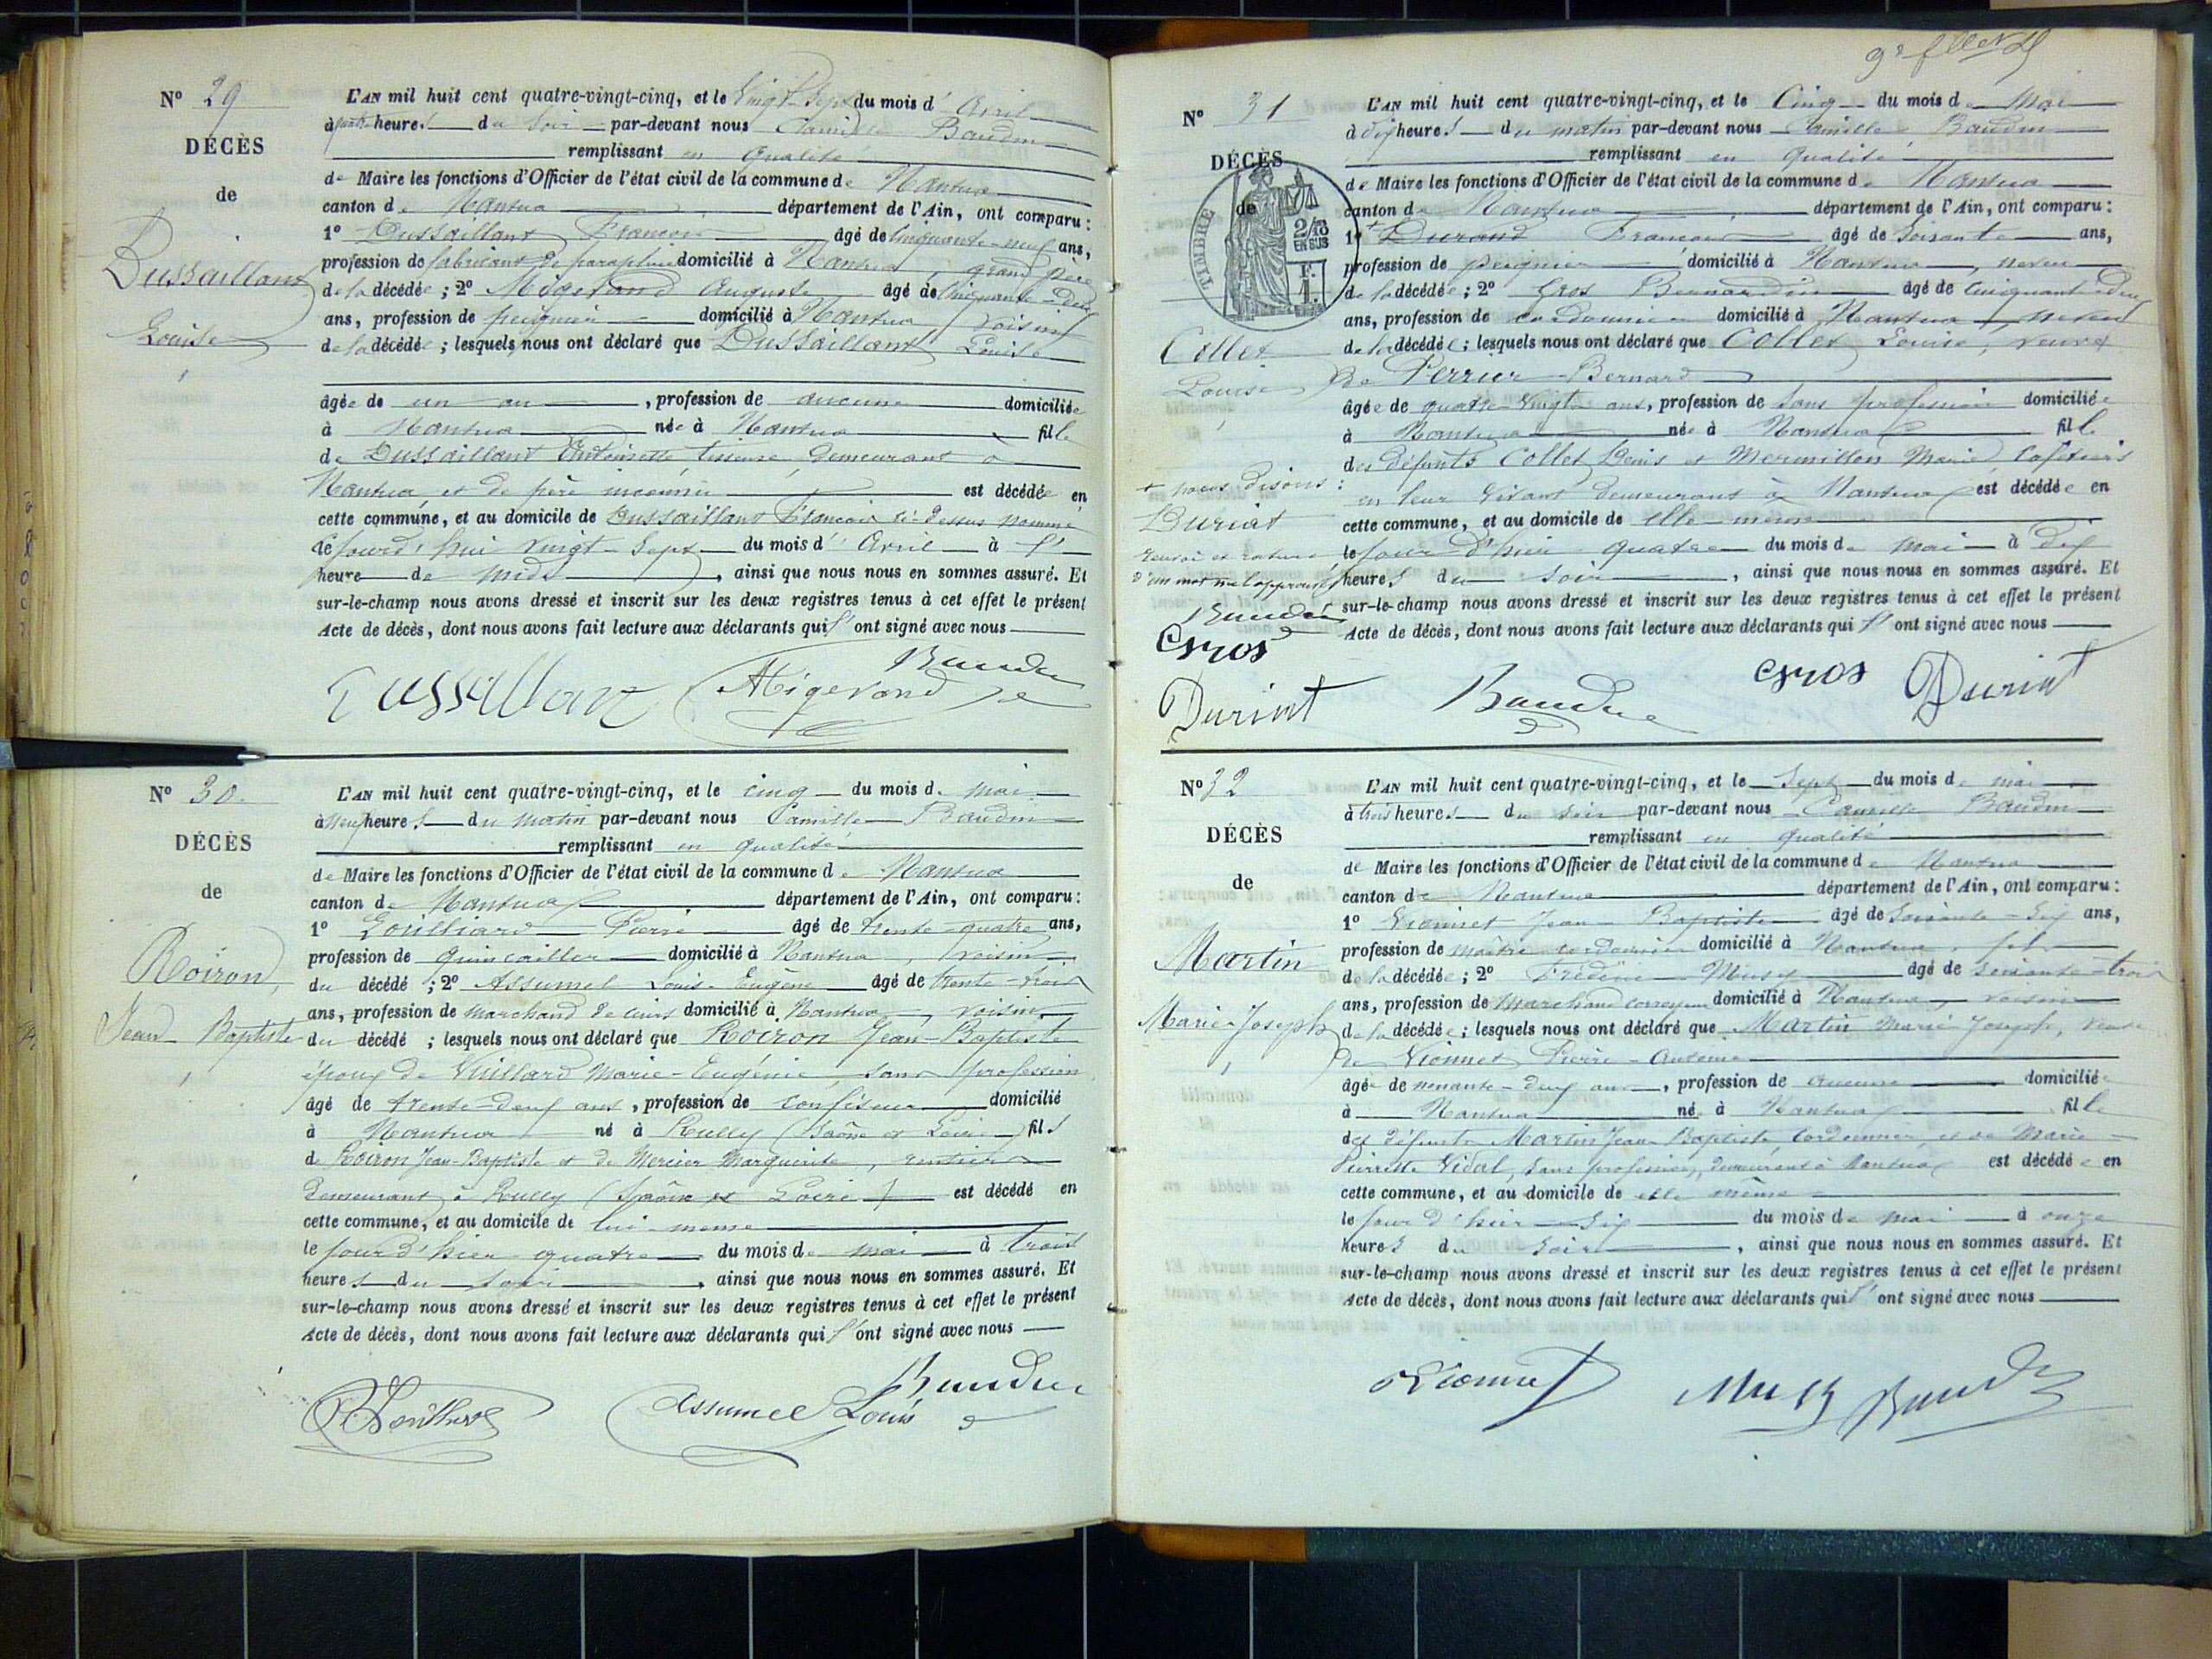 Nº 29
DÉCÈS
de
Dussaillant
Louise
L'AN mil huit cent quatre-vingt-cinq, et le Vingt-Sept du mois d'Avril
à quatre heures du Soir par-devant nous Camille Baudin
remplissant en qualité
de Maire les fonctions d'Officier de l'état civil de la commune de Nantua
canton de Nantua département de l'Ain, ont comparu:
1º Dussaillant François âgé de Cinquante-neuf ans,
profession de fabricant de parapluie domicilié à Nantua, grand père
de la décédée; 2º Migerand Auguste âgé de Cinquante-Deux
ans, profession de peignier domicilié à Nantua voisin
de la décédée; lesquels nous ont déclaré que Dussaillant Louise
âgée de un an, profession de aucune domiciliée
à Nantua née à Nantua fille
de Dussaillant Antoinette tisseuse demeurant à
Nantua, et de père inconnu est décédée en
cette commune, et au domicile de Dussaillant François ci-dessus nommé
le jourd'hui vingt-Sept du mois d'Avril à l'
heure de midi, ainsi que nous nous en sommes assuré. Et
sur-le-champ nous avons dressé et inscrit sur les deux registres tenus à cet effet le présent
Acte de décès, dont nous avons fait lecture aux déclarants qui l'ont signé avec nous
Dussaillant Migerand Baudin
Nº 30
DÉCÈS
de
Roiron,
Jean-Baptiste
L'AN mil huit cent quatre-vingt-cinq, et le cinq du mois de Mai
à neuf heures du matin par-devant nous Camille Baudin
remplissant en qualité
de Maire les fonctions d'Officier de l'état civil de la commune de Nantua
canton de Nantua département de l'Ain, ont comparu:
1º Goulliard Pierre âgé de trente-quatre ans,
profession de quincailler domicilié à Nantua, voisin
du décédé; 2º Assumel Louis-Eugène âgé de trente-trois
ans, profession de marchand de cuirs domicilié à Nantua, voisin
du décédé; lesquels nous ont déclaré que Roiron Jean-Baptiste
époux de Vuillard Marie-Eugénie, sans profession
âgé de trente-deux ans, profession de confiseur domicilié
à Nantua né à Rully (Saône et Loire) fils
de Roiron Jean-Baptiste et de Mercier Marguerite, rentiers
demeurant à Rully (Saône et Loire) est décédé en
cette commune, et au domicile de lui-même
le jour d'hier quatre du mois de mai à trois
heures du soir, ainsi que nous nous en sommes assuré. Et
sur-le-champ nous avons dressé et inscrit sur les deux registres tenus à cet effet le présent
Acte de décès, dont nous avons fait lecture aux déclarants qui l'ont signé avec nous
Assumel Louis Baudin
Nº 31
DÉCÈS
de
TIMBRE
2/10
EN SUS
F.
1.
Collet
Louise
+ nous disons:
Duriat
renvoi et rature
d'un mot nul approuvés
Baudin
Gros
Duriat
L'AN mil huit cent quatre-vingt-cinq, et le Cinq du mois de Mai
à dix heures du matin par-devant nous Camille Baudin
remplissant en qualité
de Maire les fonctions d'Officier de l'état civil de la commune de Nantua
canton de Nantua département de l'Ain, ont comparu:
1º + Durand François âgé de Soixante ans,
profession de peignier domicilié à Nantua, neveu
de la décédée; 2º Gros Bernardin âgé de Cinquante-deux
ans, profession de cordonnier domicilié à Nantua, neveu
de la décédée; lesquels nous ont déclaré que Collet Louise, veuve
de Perrier Bernard
âgée de quatre-vingt ans, profession de Sans profession domiciliée
à Nantua née à Nantua fille
des défunts Collet Denis et Mermillon Marie Cafetiers
en leur vivant demeurant à Nantua est décédée en
cette commune, et au domicile de elle-même
le jour d'hier quatre du mois de mai à dix
heures du soir, ainsi que nous nous en sommes assuré. Et
sur-le-champ nous avons dressé et inscrit sur les deux registres tenus à cet effet le présent
Acte de décès, dont nous avons fait lecture aux déclarants qui l'ont signé avec nous
Baudin Gros Duriat
Nº 32
DÉCÈS
de
Martin
Marie-Joseph
L'AN mil huit cent quatre-vingt-cinq, et le Sept du mois de mai
à trois heures du soir par-devant nous Camille Baudin
remplissant en qualité
de Maire les fonctions d'Officier de l'état civil de la commune de Nantua
canton de Nantua département de l'Ain, ont comparu:
1º Vionnet Jean-Baptiste âgé de Soixante-Six ans,
profession de maître cordonnier domicilié à Nantua, fils
de la décédée; 2º Frédéric Musy âgé de soixante-trois
ans, profession de Marchand corroyeur domicilié à Nantua, voisin
de la décédée; lesquels nous ont déclaré que Martin Marie-Joseph, veuve
de Vionnet Pierre-Antoine
âgée de nonante-deux ans, profession de aucune domiciliée
à Nantua née à Nantua fille
des défunts Martin Jean-Baptiste cordonnier, et de Marie-
Pierrette Vidal, sans profession, demeurant à Nantua est décédée en
cette commune, et au domicile de elle même
le jour d'hier Six du mois de mai à onze
heures du soir, ainsi que nous nous en sommes assuré. Et
sur-le-champ nous avons dressé et inscrit sur les deux registres tenus à cet effet le présent
Acte de décès, dont nous avons fait lecture aux déclarants qui l'ont signé avec nous
Vionnet Musy Baudin